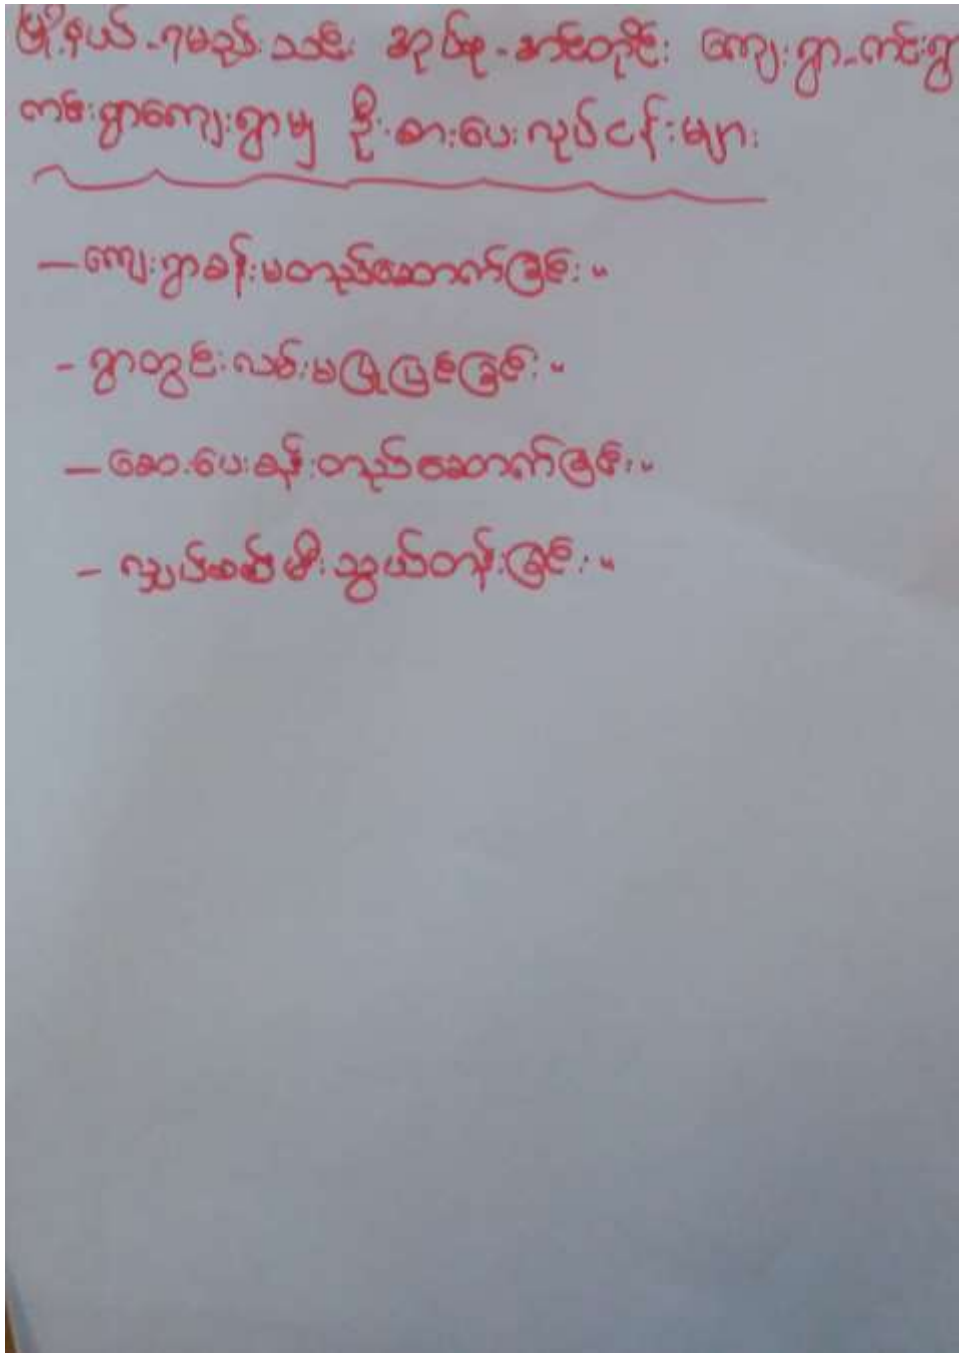 မြို့နယ်-ရမည်းသင်း အုပ်စု-အင်းတိုင်း ကျေးရွာ-ကင်းရွာ
ကင်းရွာကျေးရွာမှ ဦးစားပေးလုပ်ငန်းများ
— ကျေးရွာခန်းမတည်ဆောက်ခြင်း။
- ရွာတွင်းလမ်းမပြုပြင်ခြင်း။
— ဆေးပေးခန်းတည်ဆောက်ခြင်း။
- လျှပ်စစ်မီးသွယ်တန်းခြင်း။